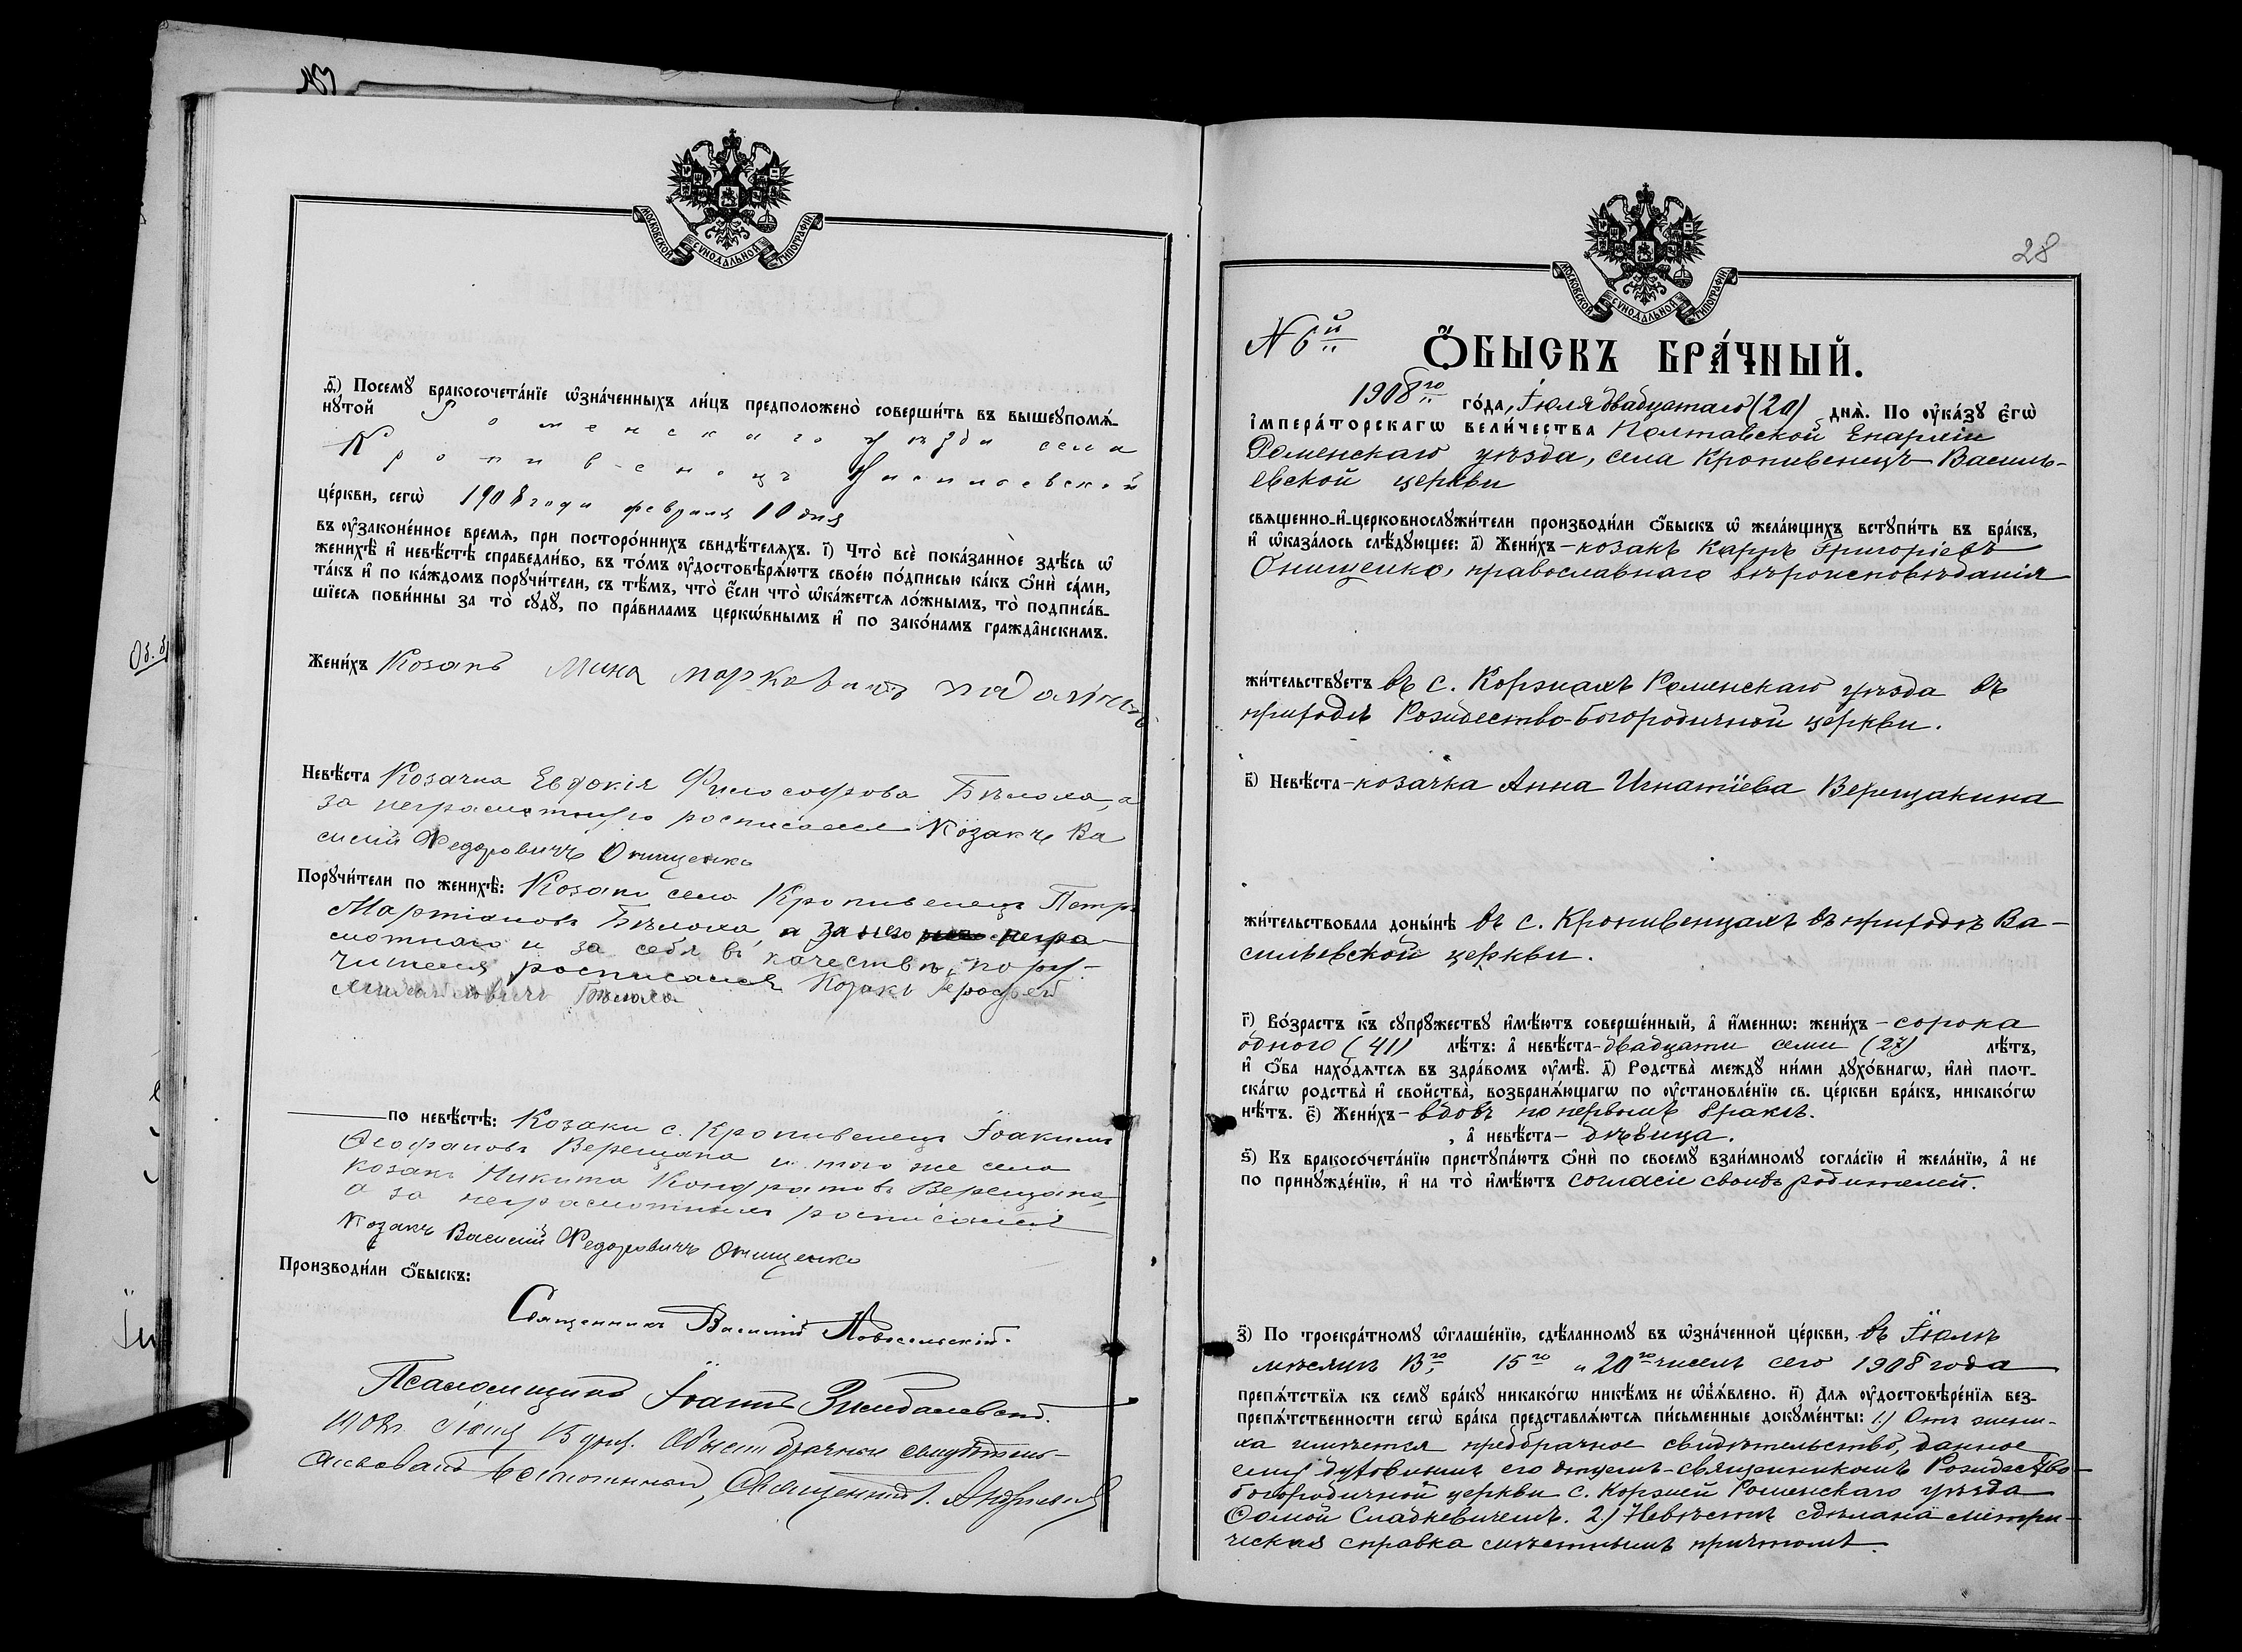 МОСКОВСКОЙ СѴНОДАЛЬНОЙ ТИПОГРАФІИ
д҃і) Посемꙋ бракосочета́нїе ѡ҆зна́ченныхъ ли́цъ предположено̀ соверши́ть въ вышеꙋпомѧ́-
нꙋтой Роменскаго уѣзда села
Кропивенецъ Васильевской
це́ркви, сегѡ̀ 1908 года февраля 10 дня
въ ᲂу҆законе́нное времѧ, при посторо́ннихъ свидѣ́телѧхъ. і҃) Что̀ всѐ пока́занное здѣ́сь ѡ҆
женихѣ̀ и҆ невѣ́стѣ справедли́во, въ то́мъ ᲂу҆достовѣрѧ́ютъ свое́ю по́дписью ка́къ ѻ҆нѝ са́ми,
та́къ и҆ по ка́ждомъ порꙋчи́тели, съ тѣ́мъ, что̀ є҆́сли что̀ ѡ҆ка́жетсѧ ло́жнымъ, то̀ подписа́в-
шїесѧ пови́нны за то̀ сꙋдꙋ̀, по пра́виламъ церкѡ́внымъ и҆ по зако́намъ гражда́нскимъ.
Жени́хъ Козакъ Мина Марковичъ
Невѣ́ста Козачка Евдокія Философова Бѣлоха, а
за неграмотную росписался Козакъ Ва
силій Федоровичъ Онищенко
Порꙋчи́тели по женихѣ̀: Козаки села Кропивенецъ Петръ
Мартіановъ Бѣлоха, а за него негра-
мотнаго и за себя въ качествѣ пору-
чителя росписался Козакъ Ерофей
Бѣлоха
по невѣ́стѣ: Козаки с. Кропивенецъ Іоакимъ
Ѳеофановъ Верещака и того же села
козакъ Никита Кондратовъ Верещака,
а за неграмотныхъ росписался
Козакъ Василій Федоровичъ Онищенко
Производи́ли ѻ҆́быскъ:
Священникъ Василій Новосельскій.
Псаломщикъ Іоаннъ
1908 г. Іюня 15 дня. Обыскъ брачный свидѣтель-
ствовалъ Благочинный, Священникъ
28
МОСКОВСКОЙ СѴНОДАЛЬНОЙ ТИПОГРАФІИ
N 6й
Ѻ҆́БЫСКЪ БРА́ЧНЫЙ.
1908го го́да, Іюля двадцатаго (20) днѧ̀. По ᲂу҆ка́зꙋ є҆гѡ̀
і҆мпера́торскагѡ вели́чества Полтавской Епархіи
Роменскаго уѣзда, села Кропивенецъ Василь-
евской церкви
свѧщенно-и҆-церковнослꙋжи́тели производи́ли ѻ҆́быскъ ѡ҆ жела́ющихъ встꙋпи́ть въ бра́къ,
и҆ ѡ҆каза́лось слѣ́дꙋющее: а҃) Жени́хъ - козакъ Карпъ Григоріевъ
Онищенко, православнаго вѣроисповѣданія
жи́тельствꙋетъ въ с. Коржахъ Роменскаго уѣзда въ
приходѣ Рождество-Богородичной церкви.
в҃) Невѣ́ста - козачка Анна Игнатіева Верещакина
жи́тельствовала доны́нѣ въ с. Кропивенцахъ въ приходѣ Ва-
сильевской церкви.
г҃) Во́зрастъ къ сꙋпрꙋ́жествꙋ и҆мѣ́ютъ соверше́нный, а҆ и҆́меннѡ: жени́хъ - сорока
одного (41) лѣ́тъ: а҆ невѣ́ста - двадцати семи (27) лѣ́тъ,
и҆ ѻ҆́ба нахо́дѧтсѧ въ здра́вомъ ᲂу҆мѣ̀. д҃) Родства̀ междꙋ̀ ни́ми дꙋхо́внагѡ, и҆лѝ плот-
ска́гѡ родства̀ и҆ сво́йства̀, возбранѧ́ющагѡ по ᲂу҆становле́нїю св. це́ркви бра́къ, никако́гѡ
нѣ́тъ. є҃) Жени́хъ - вдовъ по первомъ бракѣ.
, а҆ невѣ́ста - дѣвица.
ѕ҃) Къ бракосочета́нїю пристꙋпа́ютъ ѻ҆нѝ по своемꙋ̀ взаи́мномꙋ согла́сїю и҆ жела́нїю, а҆ не
по принꙋжде́нїю, и҆ на то̀ и҆мѣ́ютъ согласіе своихъ родителей.
з҃) По троекра́тномꙋ ѡ҆глаше́нїю, сдѣ́ланномꙋ въ ѡ҆зна́ченной це́ркви, въ Іюлѣ
мѣсяцѣ 13го 15го и 20го чиселъ сего 1908 года
препѧ́тствїѧ къ семꙋ̀ бра́кꙋ никако́гѡ никѣ́мъ не ѡ҆б̾ѧ́влено. и҃) Длѧ ᲂу҆достовѣре́нїѧ без-
препѧ́тственности сегѡ̀ бра́ка представлѧ́ютсѧ пи́сьменные докꙋме́нты: 1.) Отъ жени-
ха имѣется предбрачное свидѣтельство, данное
ему духовнымъ его отцемъ-священникомъ Рождество-
богородичной церкви с. Коржей Роменскаго уѣзда
Ѳомой Сладкевичемъ. 2.) Невѣстѣ сдѣлана метри-
ческая справка мѣстнымъ причтомъ.